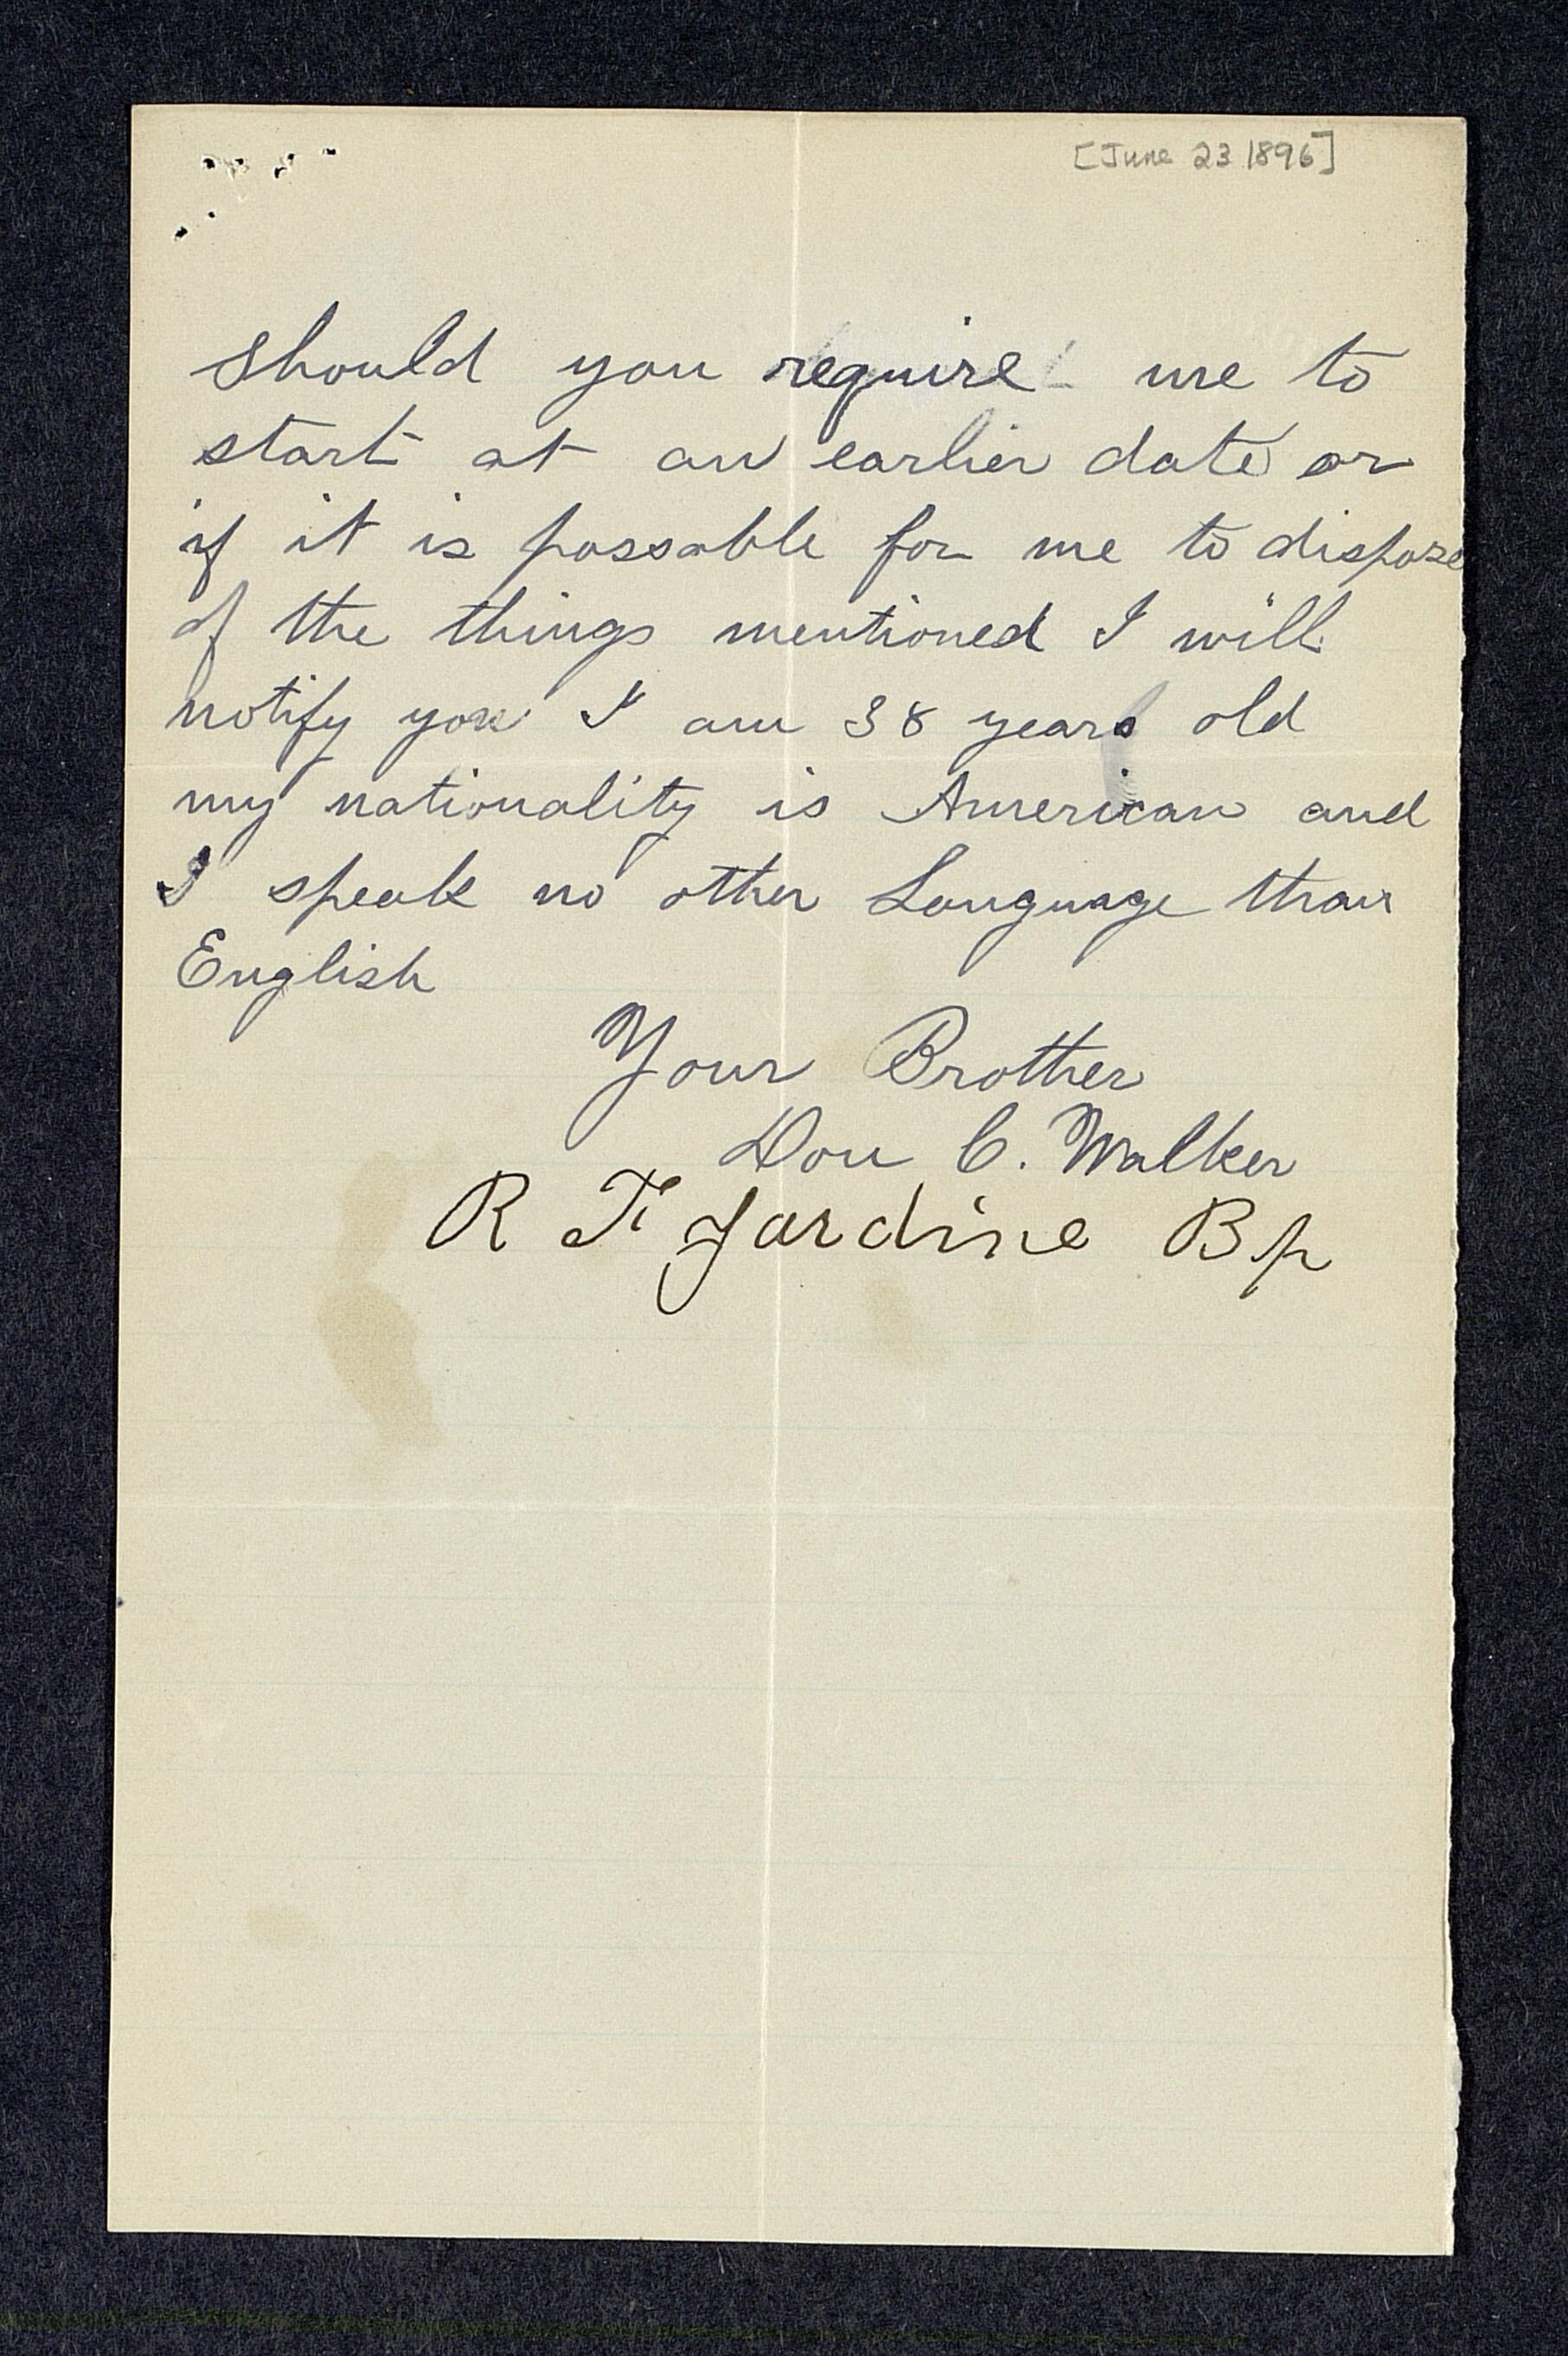 [June 23 1896]
Should you require me to
start at an earlier date or
if it is possable for me to dispose
of the things mentioned I will
notify you I am 38 years old
my nationality is American and
I speak no other Language than
English
Your Brother
Don C. Walker
R F Jardine Bp